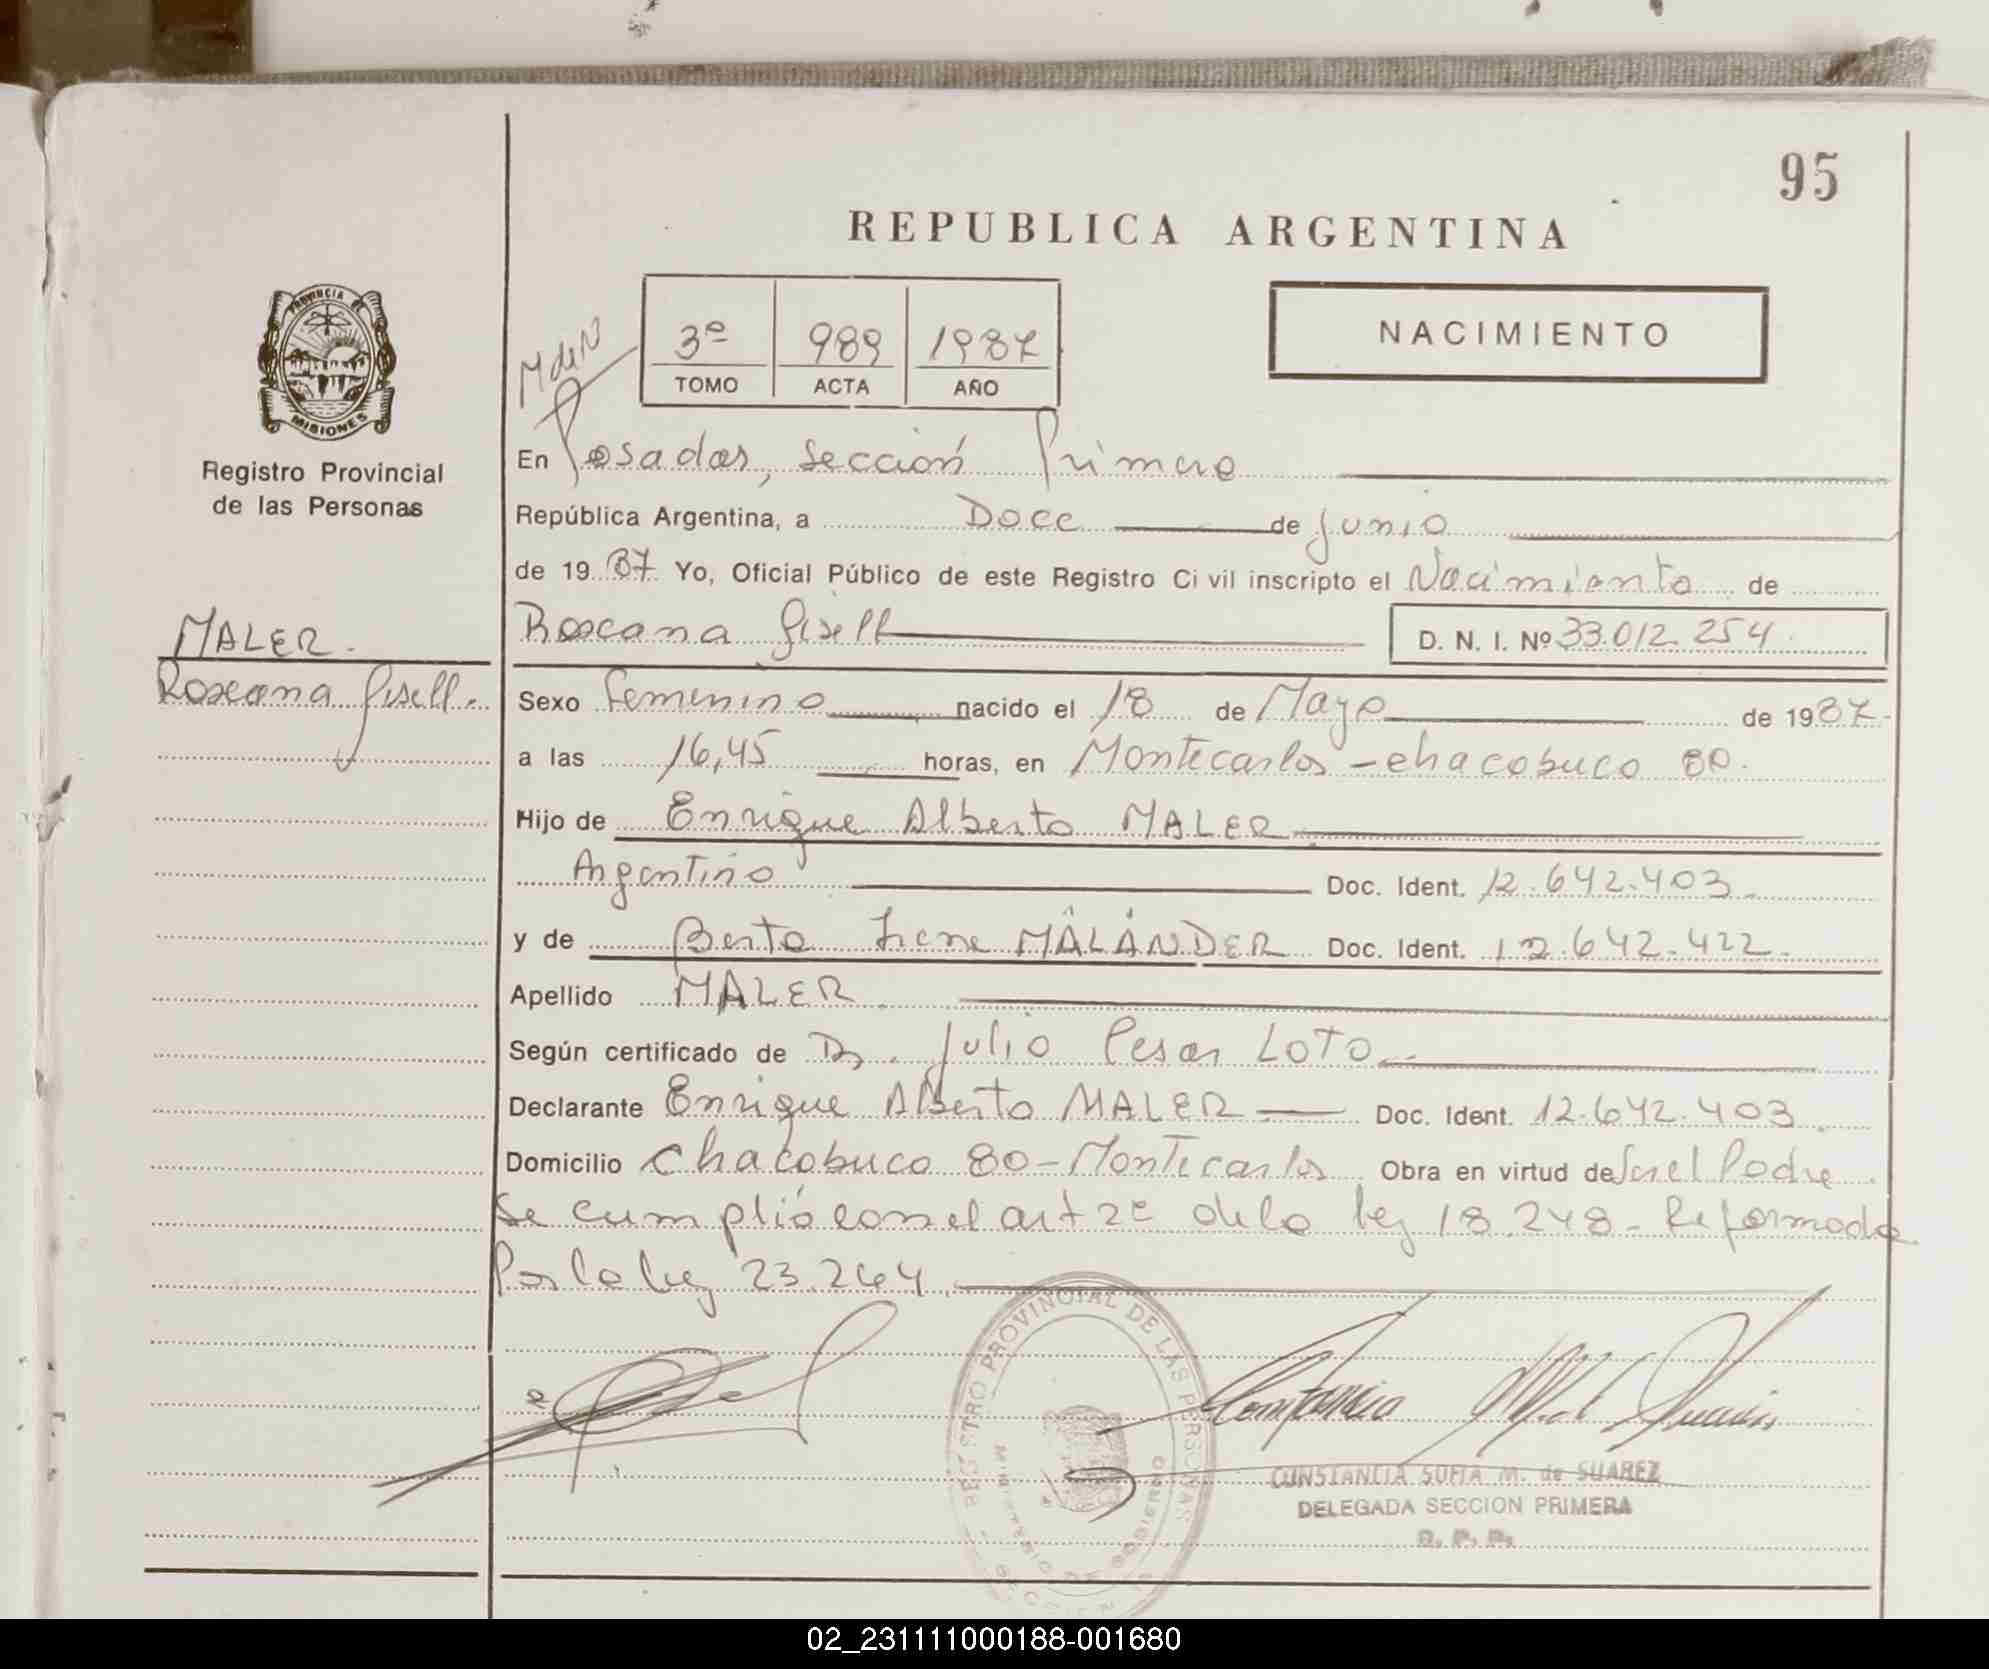 95
REPUBLICA ARGENTINA
PROVINCIA DE
MISIONES
Registro Provincial
de las Personas
MdeN
3º 989 1987
TOMO ACTA AÑO
NACIMIENTO
En Posadas, sección Primera
República Argentina, a Doce de Junio
de 1987 Yo, Oficial Público de este Registro Ci vil inscripto el Nacimiento de
Roxana Gisell D. N. I. Nº 33.012.254
MALER.
Roxana Gisell.
Sexo Femenino nacido el 18 de Mayo de 1987.
a las 16,45 horas, en Montecarlos - chacabuco 80.
Hijo de Enrique Alberto MALER
Argentino Doc. Ident. 12.642.403.
y de Berta Irene MÁLÁNDER Doc. Ident. 12.642.422.
Apellido MALER.
Según certificado de Dr. Julio Cesar LOTO.
Declarante Enrique Alberto MALER Doc. Ident. 12.642.403.
Domicilio Chacabuco 80 - Montecarlos Obra en virtud de Ser el Padre.
Se cumplió con el art 2º de la ley 18.248 - Reformada
Por la ley 23.264.
REGISTRO PROVINCIAL DE LAS PERSONAS
CONSTANCIA SOFIA M. de SUAREZ
DELEGADA SECCION PRIMERA
R. P. P.
02_231111000188-001680